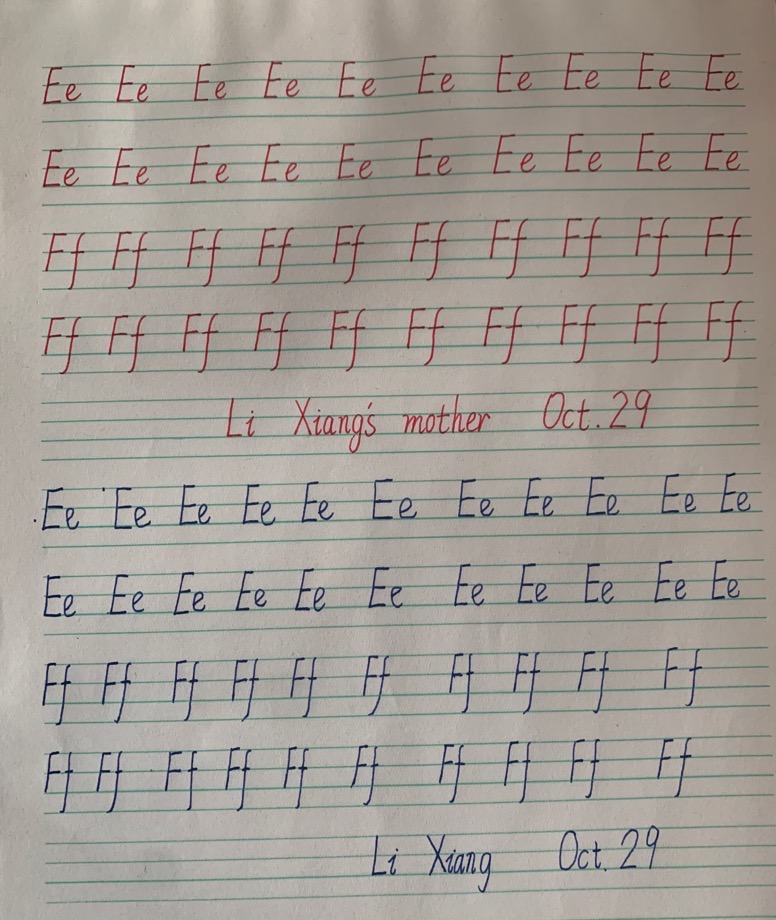 Ee Ee Ee Ee Ee Ee Ee Ee Ee Ee
Ee Ee Ee Ee Ee Ee Ee Ee Ee Ee
Ff Ff Ff Ff Ff Ff Ff Ff Ff Ff
Ff Ff Ff Ff Ff Ff Ff Ff Ff Ff
Li Xiang's mother Oct. 29
Ee Ee Ee Ee Ee Ee Ee Ee Ee Ee Ee
Ee Ee Ee Ee Ee Ee Ee Ee Ee Ee Ee
Ff Ff Ff Ff Ff Ff Ff Ff Ff Ff
Ff Ff Ff Ff Ff Ff Ff Ff Ff Ff
Li Xiang Oct. 29